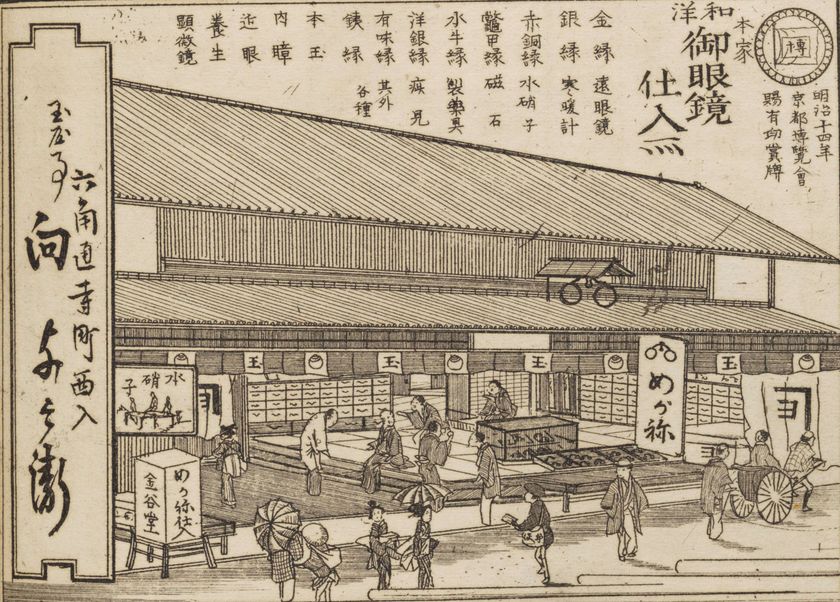 博
明治十四年
京都博覽會
賜有功賞牌
本家
和洋
御眼鏡
仕入所
金縁 遠眼鏡
銀縁 寒暖計
赤銅縁 水硝子
鼈甲縁 磁石
水牛縁 製藥具
洋銀縁
有味縁 其外各種
銕縁
本玉
内瞕
近眼
養生
顕微鏡
六角通寺町西入
玉屋事
向
水硝子
玉
玉
玉
玉
めが祢
ヨ
ヨ
めが祢仕入
金谷堂